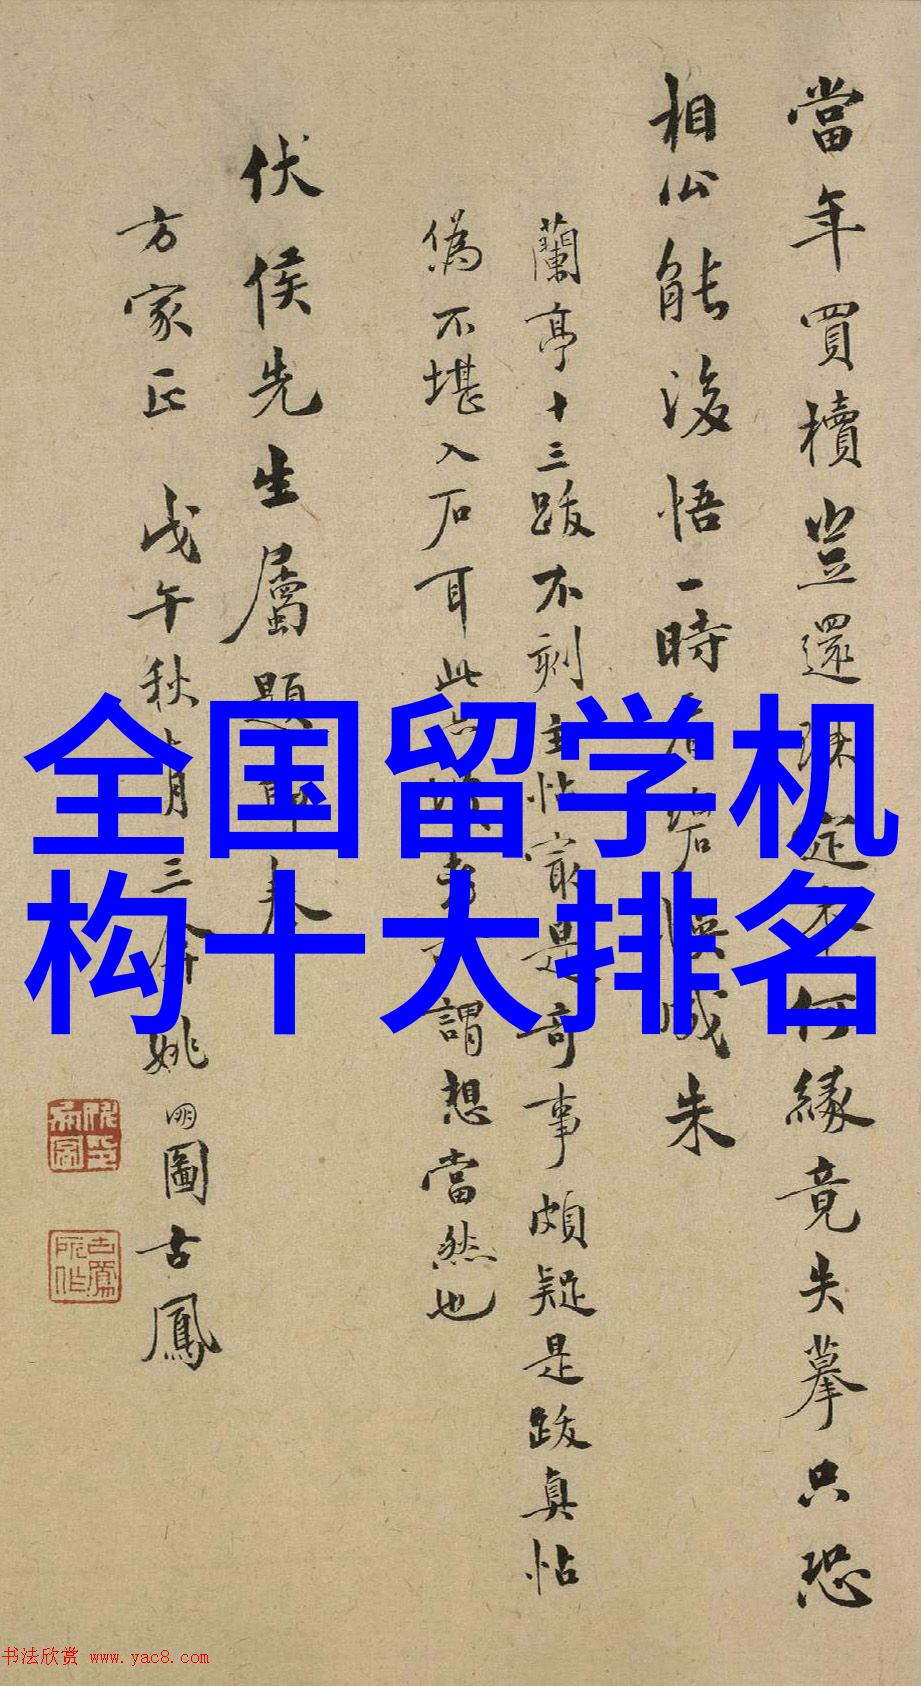 當年買櫝豈還珠定本何緣竟失摹只恐
相公能後悟一時 碧 成朱
蘭亭十三跋不刻主帖最是奇事頗疑是跋真帖
偽不堪入石耳此 謂想當然也
伏侯先生屬題即奉
方家正 戊午秋 三 姚明圖古鳳
全国留学机
构十大排名
书法欣赏 www.yac8.com